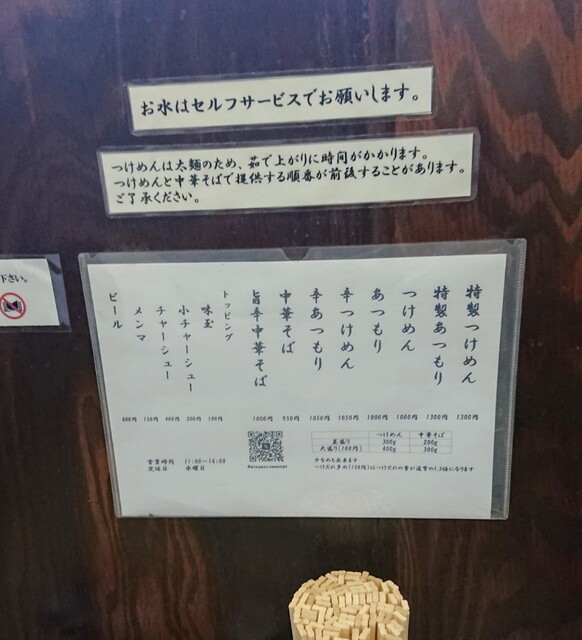 お水はセルフサービスでお願いします。
つけめんは太麺のため、茹で上がりに時間がかかります。
つけめんと中華そばで提供する順番が前後することがあります。
ご了承ください。
下さい。
特製つけめん 1300円
特製あつもり 1300円
つけめん 1000円
あつもり 1000円
辛つけめん 1050円
辛あつもり 1050円
中華そば 950円
旨辛中華そば 1000円
トッピング
味玉
小チャーシュー
チャーシュー
メンマ
ビール
つけめん 中華そば
並盛り 300g 200g
大盛り(100円) 400g 300g
少なめも出来ます
営業時間 11:00~16:00
定休日 水曜日